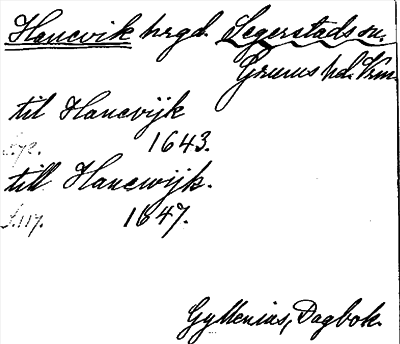 Hancvik hrgd. Segerstads sn.
Grums hd. Vrm.
til Hancvijk
S. 72. 1643.
till Hancwijk.
S. 117. 1647.
Gyllenius, Dagbok.